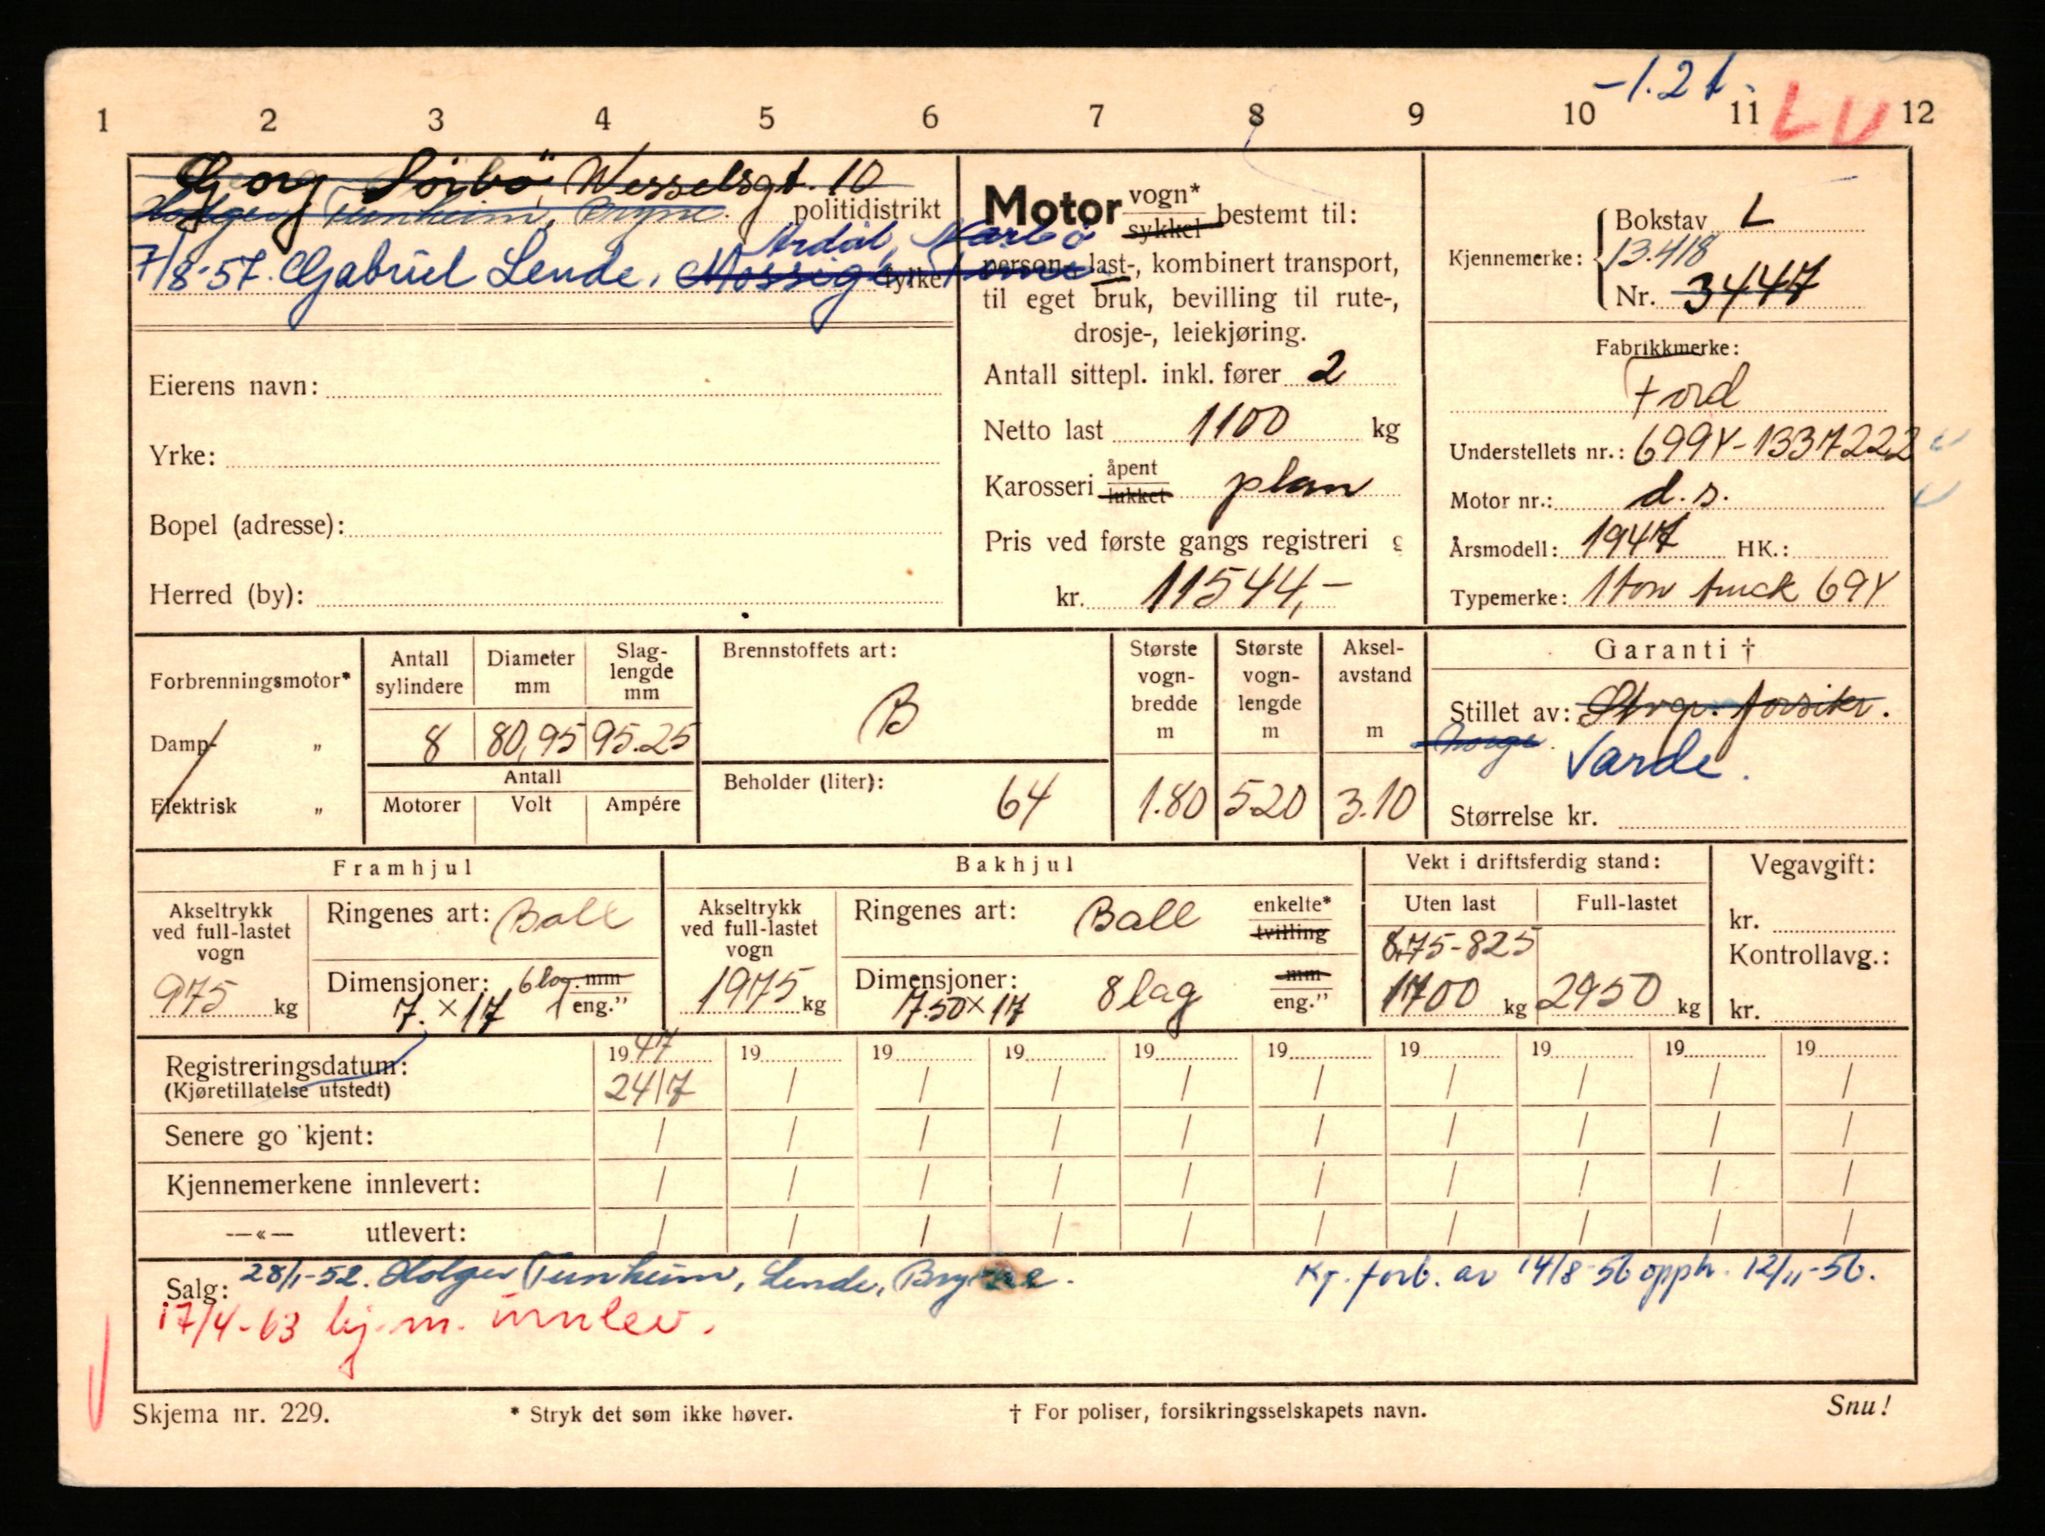 -1.2 t.
1 2 3 4 5 6 7 8 9 10 11 12
LU
Georg Sörbö Wesselsgt. 10
Holger Tunheim, Bryne. politidistrikt
Årdal, Nærbø
7/8-57. Gabriel Lende, Mossige, Time fylke
Eierens navn:
Yrke:
Bopel (adresse):
Herred (by):
Motor vogn*
sykkel bestemt til:
person-, last-, kombinert transport,
til eget bruk, bevilling til rute-,
drosje-, leiekjøring.
Antall sittepl. inkl. fører 2
Netto last 1100 kg
Karosseri åpent
lukket plan
Pris ved første gangs registreri g
kr. 11544,-
Kjennemerke: Bokstav L
13.418
Nr. 3447
Fabrikkmerke:
Ford
Understellets nr.: 699Y-1337222
Motor nr.: d.s.
Årsmodell: 1947 HK.:
Typemerke: 1 ton truck 69Y
Forbrenningsmotor*
Damp- „
Elektrisk „
Antall sylindere
8
Diameter mm
80,95
Slag-
lengde
mm
95.25
Antall
Motorer Volt Ampére
Brennstoffets art:
B
Beholder (liter):
64
Største
vogn-
bredde
m
1.80
Største
vogn-
lengde
m
5.20
Aksel-
avstand
m
3.10
Garanti †
Stillet av: forsikr.
Norge
Varde.
Størrelse kr.
Framhjul
Akseltrykk
ved full-lastet
vogn
975 kg
Ringenes art: Ball
Dimensjoner: 6 lag. mm
7. × 17 eng."
Bakhjul
Akseltrykk
ved full-lastet
vogn
1975 kg
Ringenes art: Ball enkelte*
tvilling
Dimensjoner: 8 lag mm
7.50×17 eng."
Vekt i driftsferdig stand:
Uten last Full-lastet
875-825
1700 kg 2950 kg
Vegavgift:
kr.
Kontrollavg.:
kr.
Registreringsdatum: 1947 19 19 19 19 19 19 19 19 19
(Kjøretillatelse utstedt) 24/7 / / / / / / / / /
Senere go kjent: / / / / / / / / / /
Kjennemerkene innlevert: / / / / / / / / / /
—«— utlevert: / / / / / / / / / /
Salg: 28/1-52. Holger Tunheim, Lende, Bryne. Kj. forb. av 14/8-56 opph. 12/11-56.
17/4-63 kj.m. innlev.
Skjema nr. 229. * Stryk det som ikke høver. † For poliser, forsikringsselskapets navn. Snu!